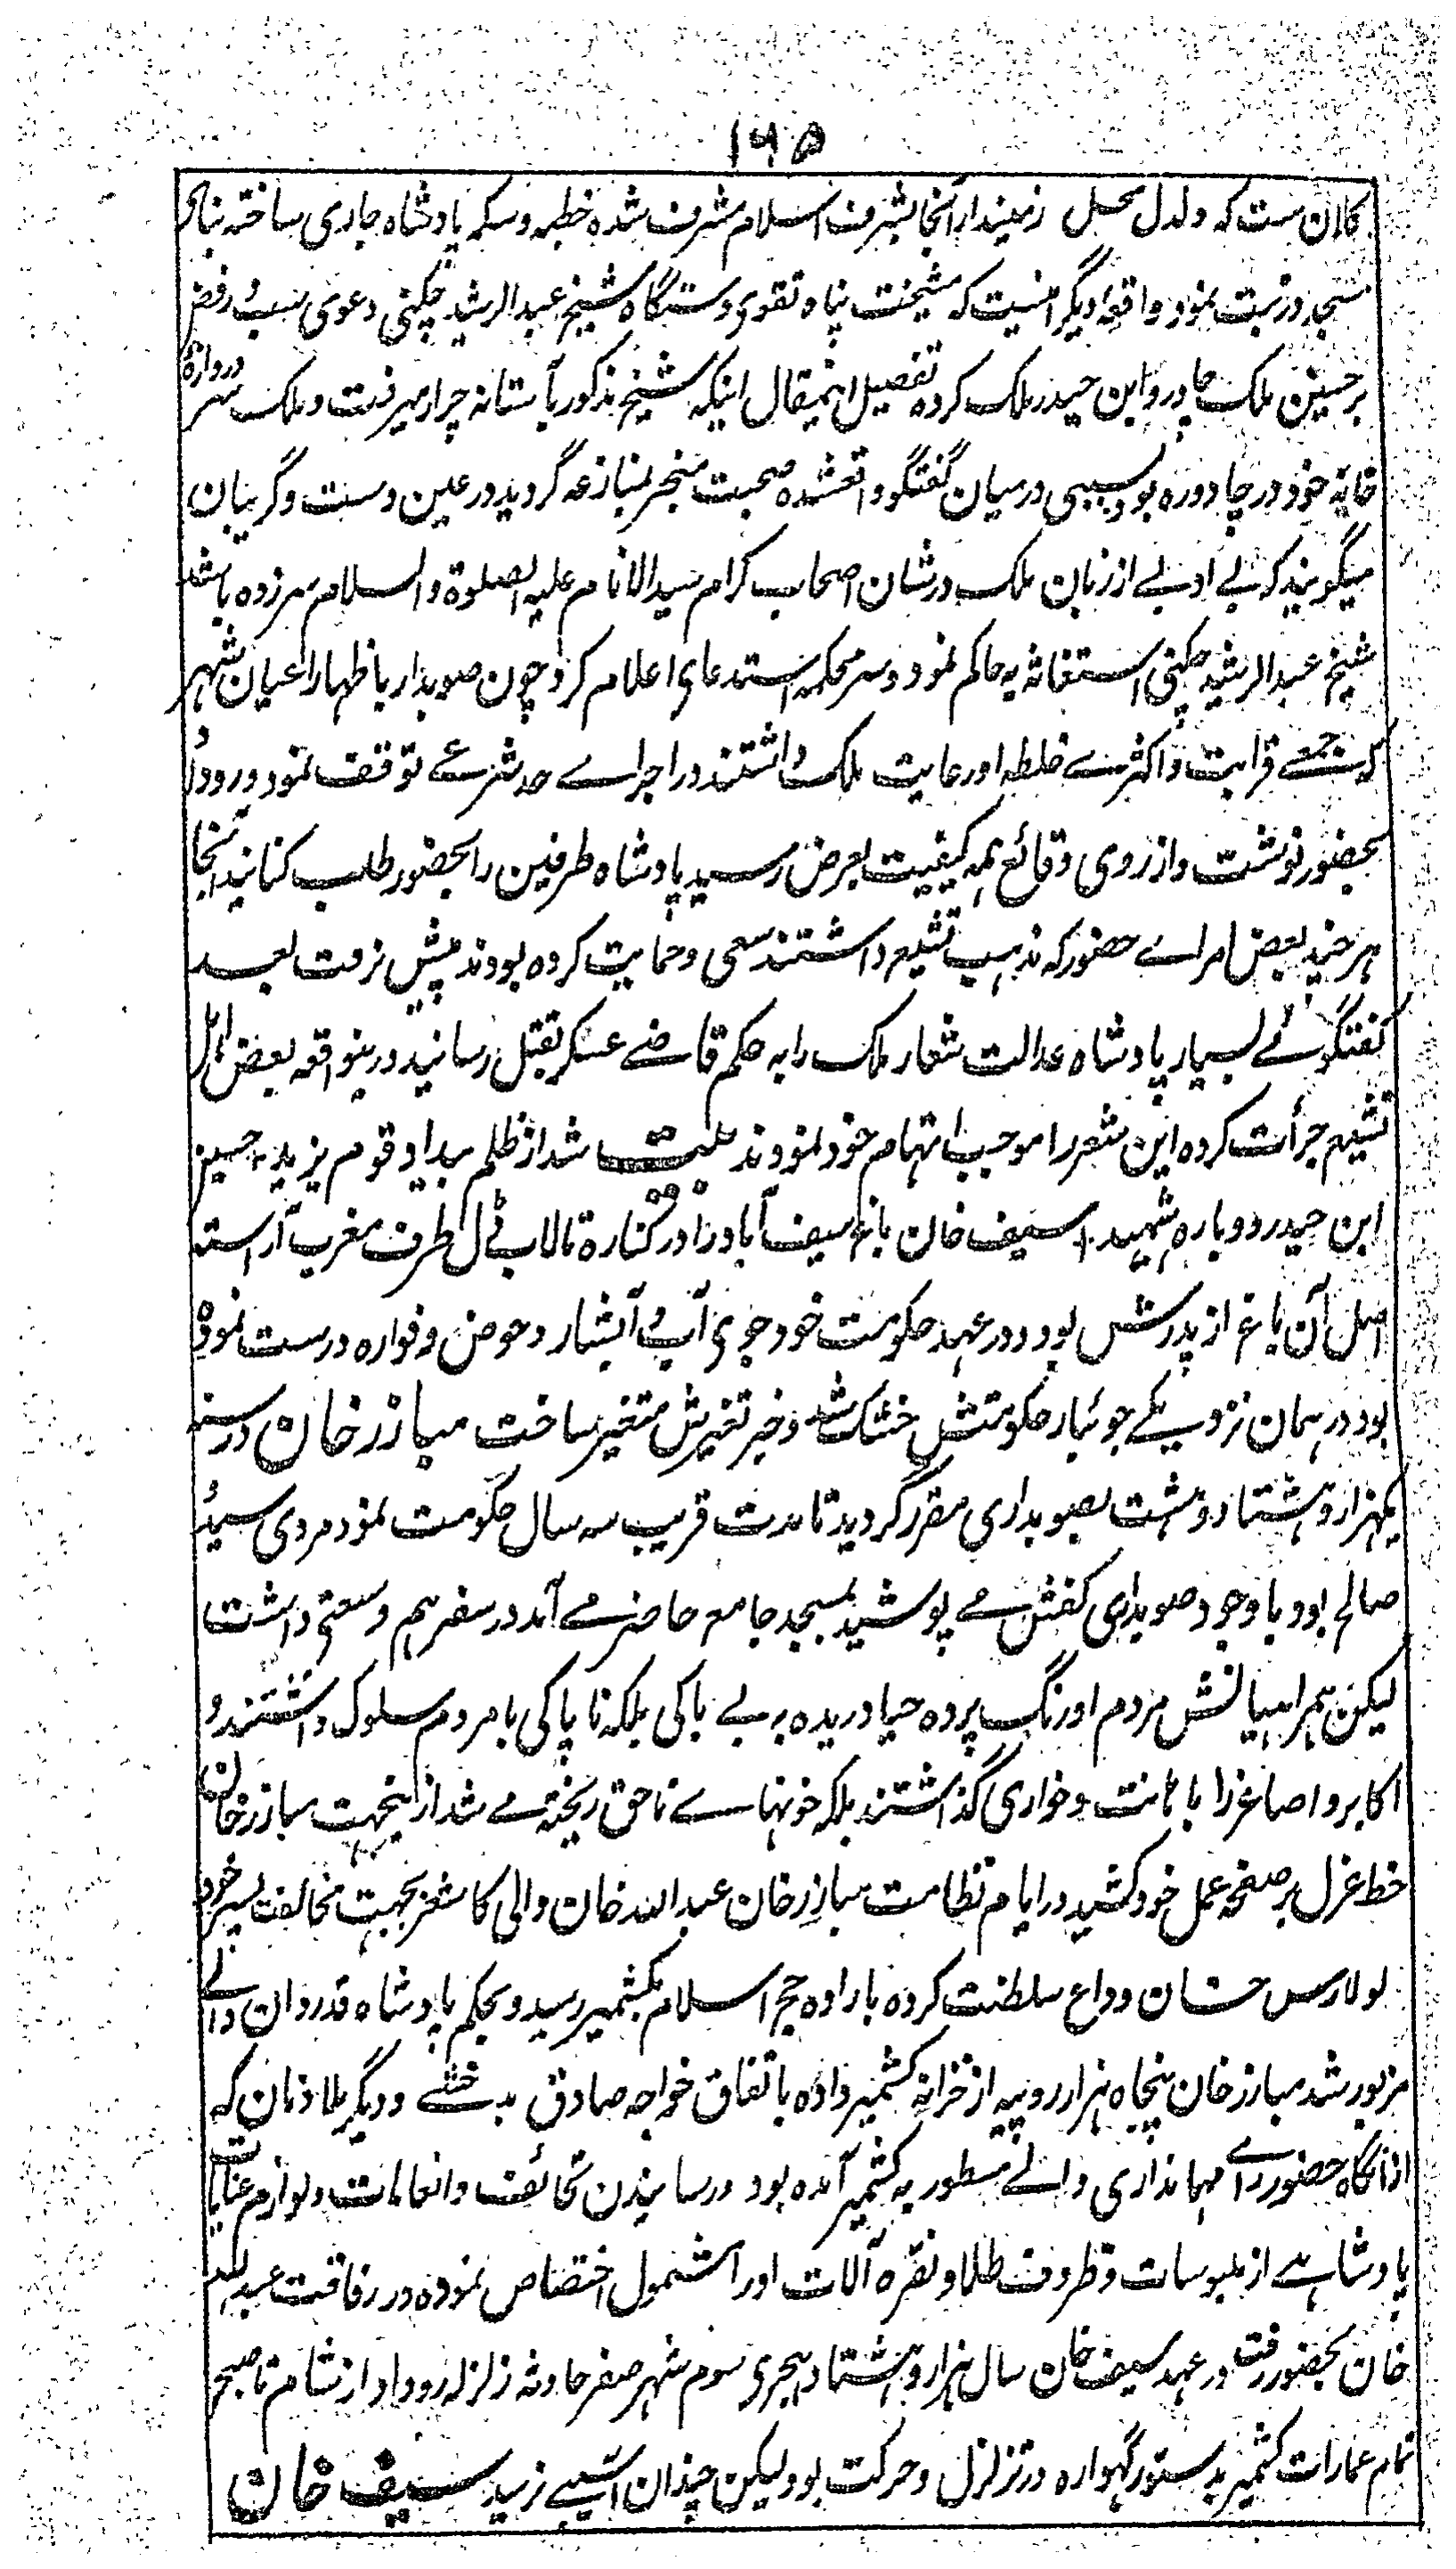 ۱۶۵
کلان ست که دلدل محل زمیندار آنجا بشرف اسلام مشرف شده خطبه و سکه پادشاه جاری ساخته بنای
مسجد در تبت نمود واقعهٔ دیگر اینست که مشیخت پناه تقوی دستگاه شیخ عبدالرشید چکنی دعوی سب و رفض
بر حسین ملک چادرو ابن حیدر ملک کرده تفصیل اینمقال اینکه شیخ مذکور بآستانه چرار میرفت و ملک بر سر دروازهٔ
خانه خود در چادوره بود بسببی درمیان گفتگو واقعشده صحبت منجر بمنازعه گردید در عین دست و گریبان
میگویند که بے ادبے از زبان ملک در شان اصحاب کرام سید الانام علیه الصلوة والسلام سرزده باشد
شیخ عبدالرشید چکنی استغاثه به حاکم نمود و سر محکمه استدعای اعلام کرد چون صوبدار باظهار اعیان شهر
که جمعے قرابت و اکثرے خلطه و رعایت ملک داشتند در اجراے حد شرعے توقف نمود و روداد
بحضور نوشت و از روی وقائع همه کیفیت بعرض رسید پادشاه طرفین را بحضور طلب کنانید آنجا
هر چند بعض امراے حضور که مذهب تشیع داشتند سعی و حمایت کرده بودند پیش نرفت بعد
گفتگوئے بسیار پادشاه عدالت شعار ملک را به حکم قاضے عسکر بقتل رسانید درینواقعه بعض اهل
تشیع جرأت کرده این شعر را موجب اتهام خود نمودند بیت شد از ظلم بیداد قوم یزید ٭ حسین
ابن حیدر دوباره شهید ٭ سیف خان باغ سیف آباد را در کناره تالاب ڈل طرف مغرب آراسته
اصل آن باغ از پدرش بود و در عهد حکومت خود جوی آب و آبشار و حوض و فواره درست نموده
بود در همان نزدیکے جوئبار حکومتش خشک شد و خبر تغیرش متغیر ساخت مبارز خان در سنه
یکهزار و هشتاد و هشت بصوبداری مقرر گردید تا مدت قریب سه سال حکومت نمود مردی سید
صالح بود با وجود صوبداری کفش مے پوشید بمسجد جامع حاضر مے آمد در سفر هم وسعتے داشت
لیکن همراهیانش مردم اورنگ پرده حیا دریده به بے باکی بلکه ناپاکی با مردم سلوک داشتند و
اکابر و اصاغر را باهانت و خواری گذاشتند بلکه خونهاے ناحق ریخته مے شد ازینجهت مبارز خان
خط عزل بر صفحه عمل خود کشید در ایام نظامت مبارز خان عبدالله خان والی کاشغر بجهت مخالفت پسر خود
لولارس خان وداع سلطنت کرده باراده حج اسلام بکشمیر رسید و بحکم پادشاه قدردان والے
مزبور شد مبارز خان پنجاه هزار روپیه از خزانه کشمیر داده باتفاق خواجه صادق بدخشے و دیگر ملازمان که
از انگاه حضور براے مهمانداری والے مسطور به کشمیر آمده بود در رسانیدن تحائف و انعامات و لوازم عنایات
پادشاهے از ملبوسات و ظروف طلا و نقره آلات او را مشمول اختصاص نموده در رفاقت عبدالله
خان بحضور رفت در عهد سیف خان سال هزار و هشتاد هجری سوم شهر صفر حادثه زلزله رو داد از شام تا صبح
تمام عمارات کشمیر بدستور گهواره در تزلزل و حرکت بود لیکن چندان آسیبے نرسید سیف خان